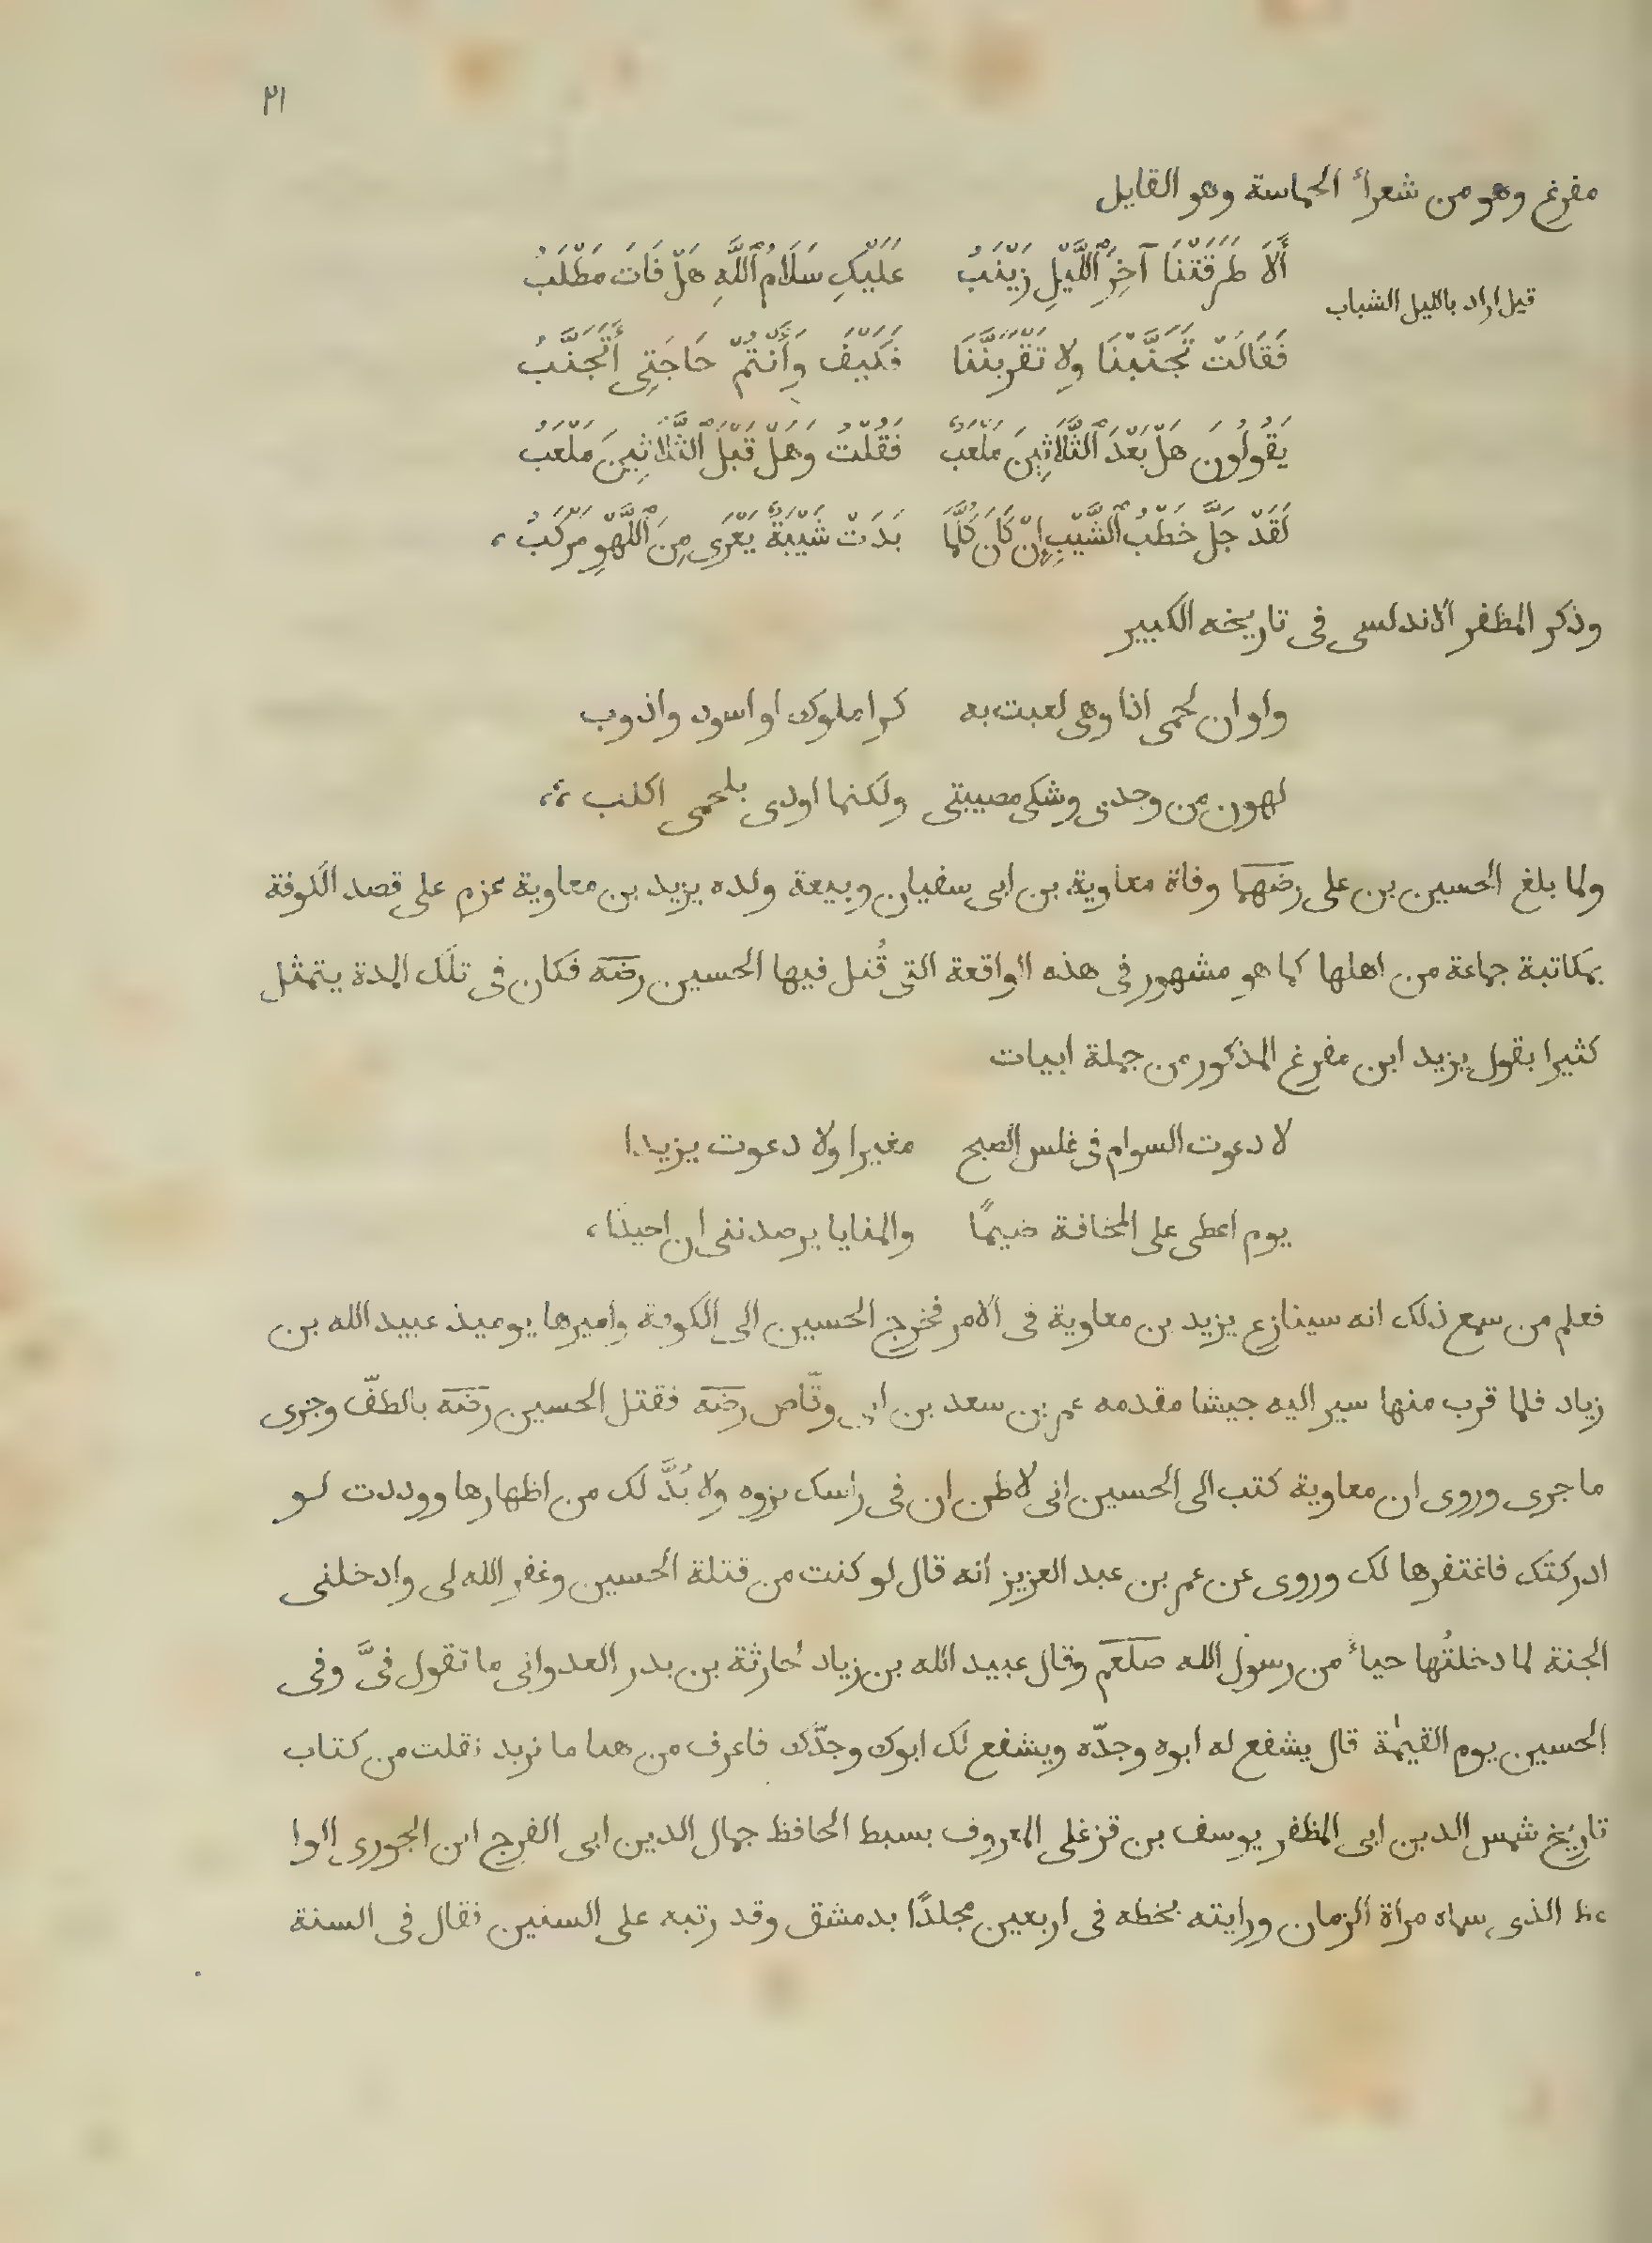 ٢١
مفرغ وهو من شعراء الحماسة وهو القايل
أَلَا طَرَقَتْنَا آخِرَ ٱللَّيْلِ زَيْنَبُ عَلَيْكِ سَلَامُ ٱللَّهِ هَلْ فَاتَ مَطْلَبُ
قيل اراد بالليل الشباب
فَقَالَتْ تَجَنَّبْنَا وَلَا تَقْرَبَنَّنَا فَكَيْفَ وَأَنْتُمْ حَاجَتِى أَتَجَنَّبُ
يَقُولُونَ هَلْ بَعْدَ ٱلثَّلَاثِينَ مَلْعَبٌ فَقُلْتُ وَهَلْ قَبْلَ ٱلثَّلَاثِينَ مَلْعَبُ
لَقَدْ جَلَّ خَطْبُ ٱلشَّيْبِ إِنْ كَانَ كُلَّمَا بَدَتْ شَيْبَةٌ يَعْرَى مِنَ ٱللَّهْوِ مَرْكَبُ ،
وذكر المظفر الاندلسى فى تاريخه الكبير
واو ان لحمى اذا وهى لعبت به كرا ملوك او اسود واذوب
لهون من وجدى وشكى مصيبتى ولكنما اودى بلحمى اكلب ،،
ولما بلغ الحسين بن على رضهما وفاة معاوية بن ابى سفيان وبيعة ولده يزيد بن معاوية عزم على قصد الكوفة
بمكاتبة جماعة من اهلها كما هو مشهور فى هذه الواقعة التى قُتل فيها الحسين رضه فكان فى تلك المدة يتمثل
كثيرا بقول يزيد ابن مفرغ المذكور من جملة ابيات
لا دعوت السوام فى غلس الصبح مغيرا ولا دعوت يزيدا
يوم اعطى على المخافة ضيمًا والمنايا يرصدننى ان احيدا ،
فعلم من سمع ذلك انه سينازع يزيد بن معاوية فى الامر فخرج الحسين الى الكوفة واميرها يوميذ عبيد الله بن
زياد فلما قرب منها سير اليه جيشا مقدمه عمر بن سعد بن ابى وقّاص رضه فقتل الحسين رضه بالطفّ وجرى
ما جرى وروى ان معاوية كتب الى الحسين انى لاظن ان فى راسك نزوه ولا بُدَّ لك من اظهارها ووددت لو
ادركتك فاغتفرها لك وروى عن عمر بن عبد العزيز انه قال لو كنت من قتلة الحسين وغفر الله لى وادخلنى
الجنة لما دخلتُها حياء من رسول الله صلعم وقال عبيد الله بن زياد لحارثة بن بدر العدوانى ما تقول فىَّ وفى
الحسين يوم القيمة قال يشفع له ابوه وجدّه ويشفع لك ابوك وجدّك فاعرف من هنا ما نريد نقلت من كتاب
تاريخ شمس الدين ابى المظفر يوسف بن قزغلى المعروف بسبط الحافظ جمال الدين ابى الفرج ابن الجوزى الوا
عظ الذى سماه مرأة الزمان ورايته بخطه فى اربعين مجلدًا بدمشق وقد رتبه على السنين فقال فى السنة